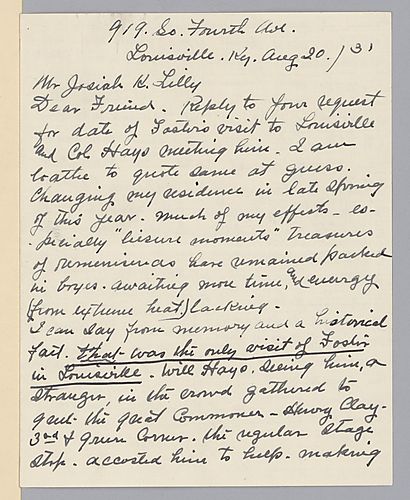 919. So. Fourth Ave.
Louisville. Ky. Aug 20. / 31
Mr Josiah K. Lilly
Dear Friend. Reply to your request
for date of Foster's visit to Louisville
and Col Hays meeting him. I am
loathe to quote same at guess.
Changing my residence in late Spring
of this year. much of my effects - es-
pecially "leisure moments" treasures
of reminiscences have remained packed
in boxes. awaiting more time, and energy
(from extreme heat) lacking.
I can say from memory and a historical
fact. that was the only visit of Foster
in Louisville. Will Hays, seeing him, a
stranger, in the crowd gathered to
greet the great Commoner - Henry Clay -
3rd & Green Corner. the regular Stage
stop. accosted him to help. making